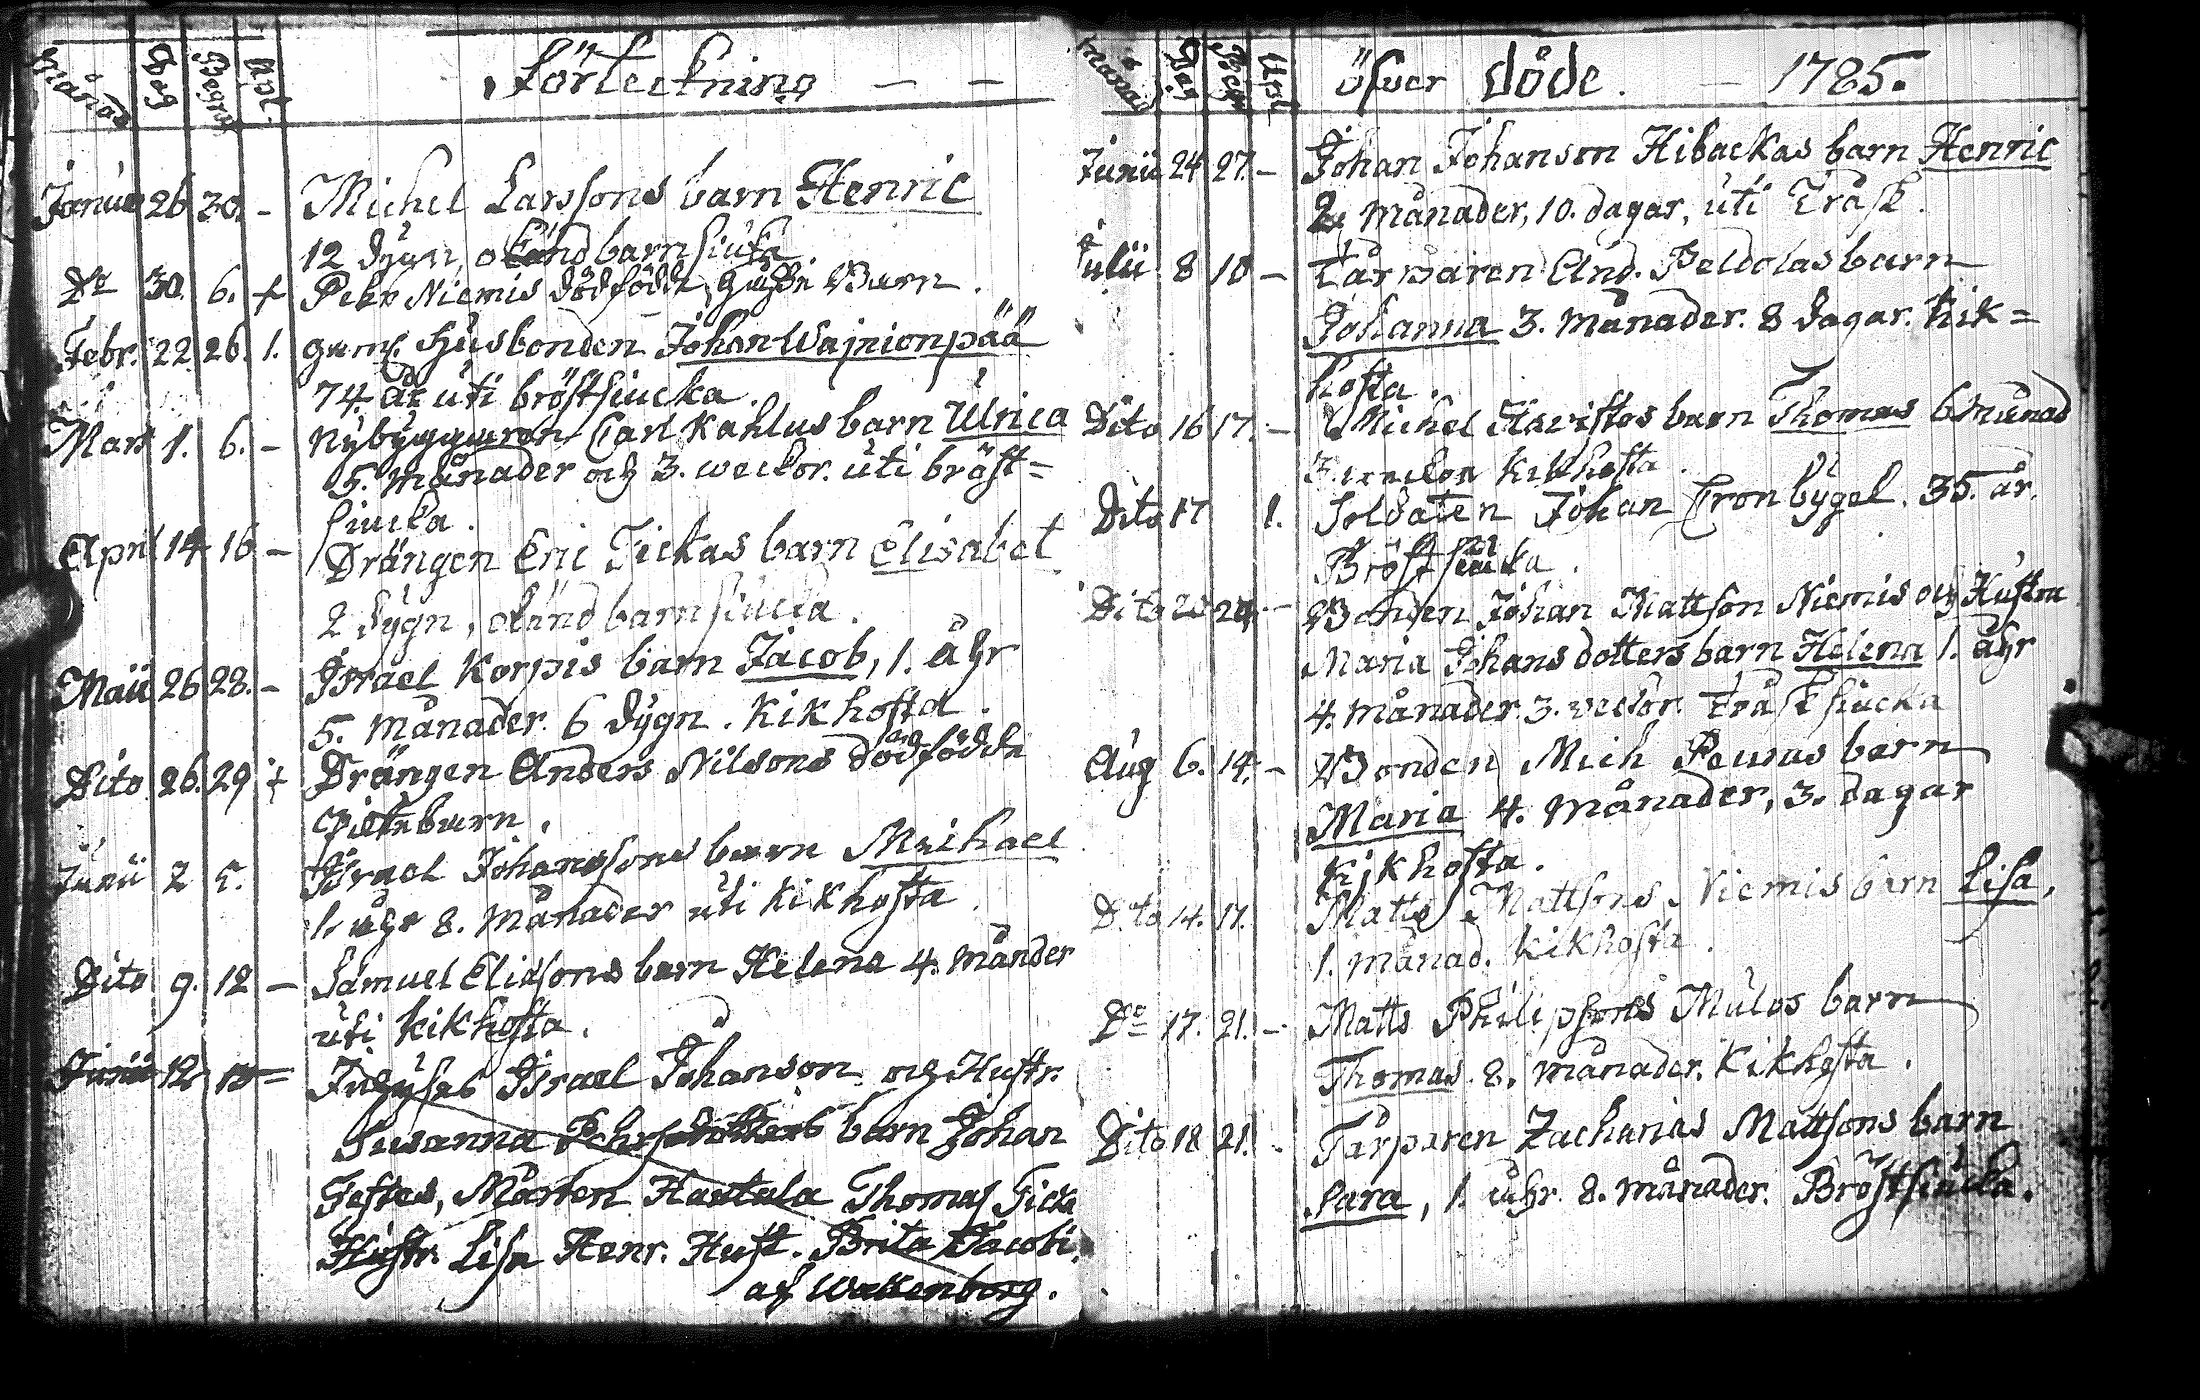 Månad Dag Begrof Upl. Förteckning — —
Januar 26 30. – Michel Larssons barn Henric
12 dygn okänd barnsiuka
Do 30. 6. + Pehr Niemis dödfödde gåsse Barn.
Febr. 22. 26. 1. gaml. Husbonden Johan Wajnionpää
74 år uti bröstsiucka.
Mart 1. 6. – Nybyggaren Carl Kahlus barn Ulrica
5. månader och 3. weckor. uti bröst=
siucka.
April 14 16 – Drängen Eric Fickas barn Elisabet
2 dygn, okänd barnsiucka.
Maii 26 28. – Israel Korpis barn Jacob, 1. åhr
5. månader. 6 dygn. Kikhosta.
Dito 26. 29 + Drängen Anders Nilsons dödfödde
barn.
Junii 2 5. Israel Johanssons barn Michael
1. åhr 8. månader uti Kikhosta.
Dito 9. 12 – Samuel Eliæsons barn Helena 4. månder
uti kikhosta.
Junii 12 Israel Johanson och Hustr.
Susanna Pehrsdotters barn Johan
Testes, Mårten Hautala Thomas Ficka
Hustr. Lisa Henr. Hust. Brita Jacobi.
af Wattenborg.
Månad Dag Begr Upl öfver döde. — 1785.
Junii 24 27. – Johan Johanson Hibackas barn Henric
2 månader, 10. dagar, uti Tråsk.
Julii 8 10 – Tårparen And. Peldolas barn
Johanna 3. månader. 8 dagar. Kik=
hosta.
Dito 16 17. – Michel Havistos barn Thomas 6 månad
3. weckor Kikhosta.
Dito 17 1. Soldaten Johan Cronbygel. 35. år.
Bröstsiucka.
Dito 20 24. – Bonden Johan Mattson Niemis och Hustru
Maria Johansdotters barn Helena 1. åhr
4. månader. 3. veckor. Tråsksiucka
Aug 6. 14. – Bonden Mich Peuras barn
Maria 4. månader, 3. dagar
Kikhosta.
Dito 14. 17. Matts Mattsons Niemis barn Lisa,
1. månad. Kikhosta.
Do 17. 21. – Matts Philipsons Mulos barn
Thomas 8. månader. Kikhosta.
Dito 18 21. – Tårparen Zacharias Mattsons barn
Sara, 1. åhr. 8. månader. Bröstsiucka.